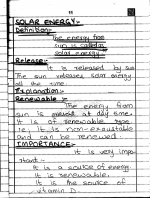 SOLAR ENERGY:-
Definition:-
The energy from
sun is called as
solar energy.
Release:-
It is released by sun
The sun releases solar energy
all the time.
Explanation:-
Renewable:-
The energy from
sun is present at day time.
It is of renewable type
i.e; It is non-exaustable
and can be renewed.
IMPORTANCE:-
It is very impo
rtant:-
It is a source of energy
It is renewable.
It is the source of
vitamin D.